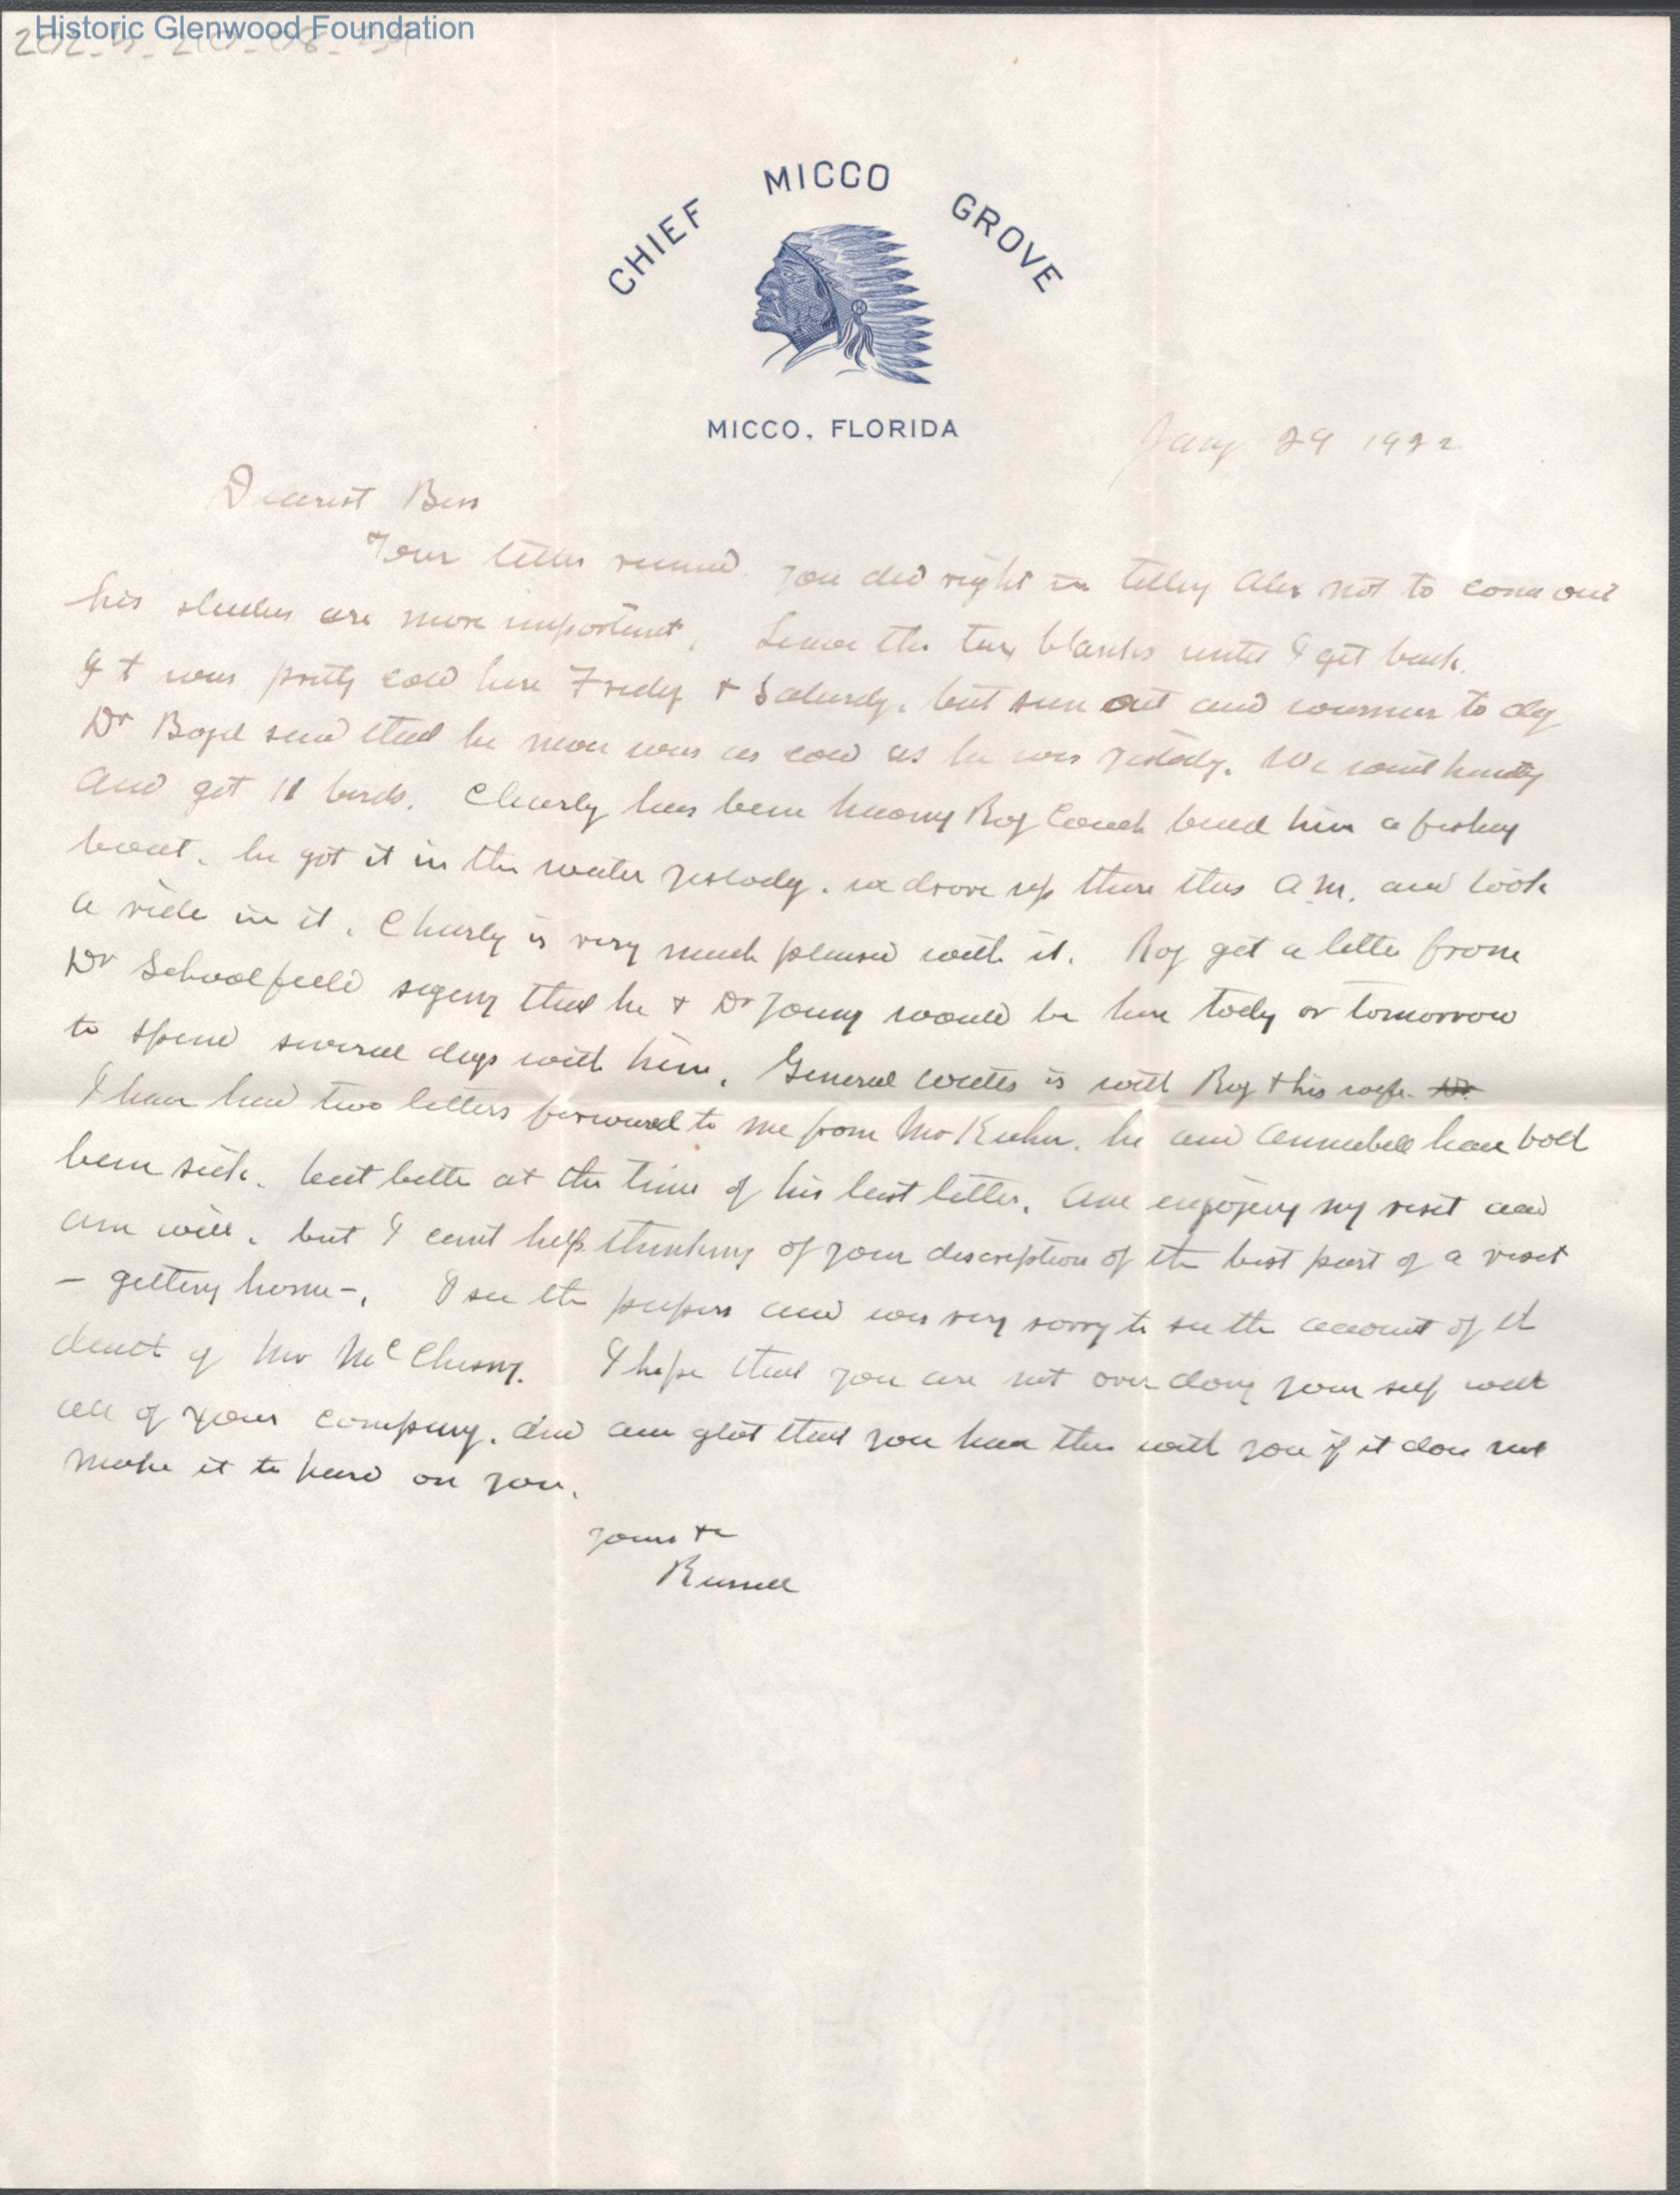 Historic Glenwood Foundation
CHIEF MICCO GROVE
MICCO, FLORIDA
Jany 29 1922
Dearest Bess
Your letter received. you did right in telling Alex not to come out
his studies are more important. Leave the tax blanks until I get back.
It was pretty cold here Friday & Saturdy. but sun out and warmer to day
Dr Boyd said that he never was as cold as he was yestdy. We went hunting
and got 11 birds. Charly has been having Roy Couch build him a fishing
boat. he got it in the water yestody. we drove up there this A.M. and took
a ride in it. Charly is very much pleased with it. Roy got a letter from
Dr Schoolfield saying that he & Dr Young would be here tody or tomorrow
to spend several days with him. General Watts is with Roy & his wife. Dr
I have had two letters forward to me from Mr Kuhn. he and Annabell have both
been sick. but better at the time of his last letter. Am enjoying my visit and
am well. but I cant help thinking of your discreption of the best part of a visit
- getting home -. I see the papers and was very sorry to see the account of the
death of Mr McClusny. I hope that you are not over doing your self with
all of your company. and am glad that you have them with you if it does not
make it to hard on you.
yours &c
Russell